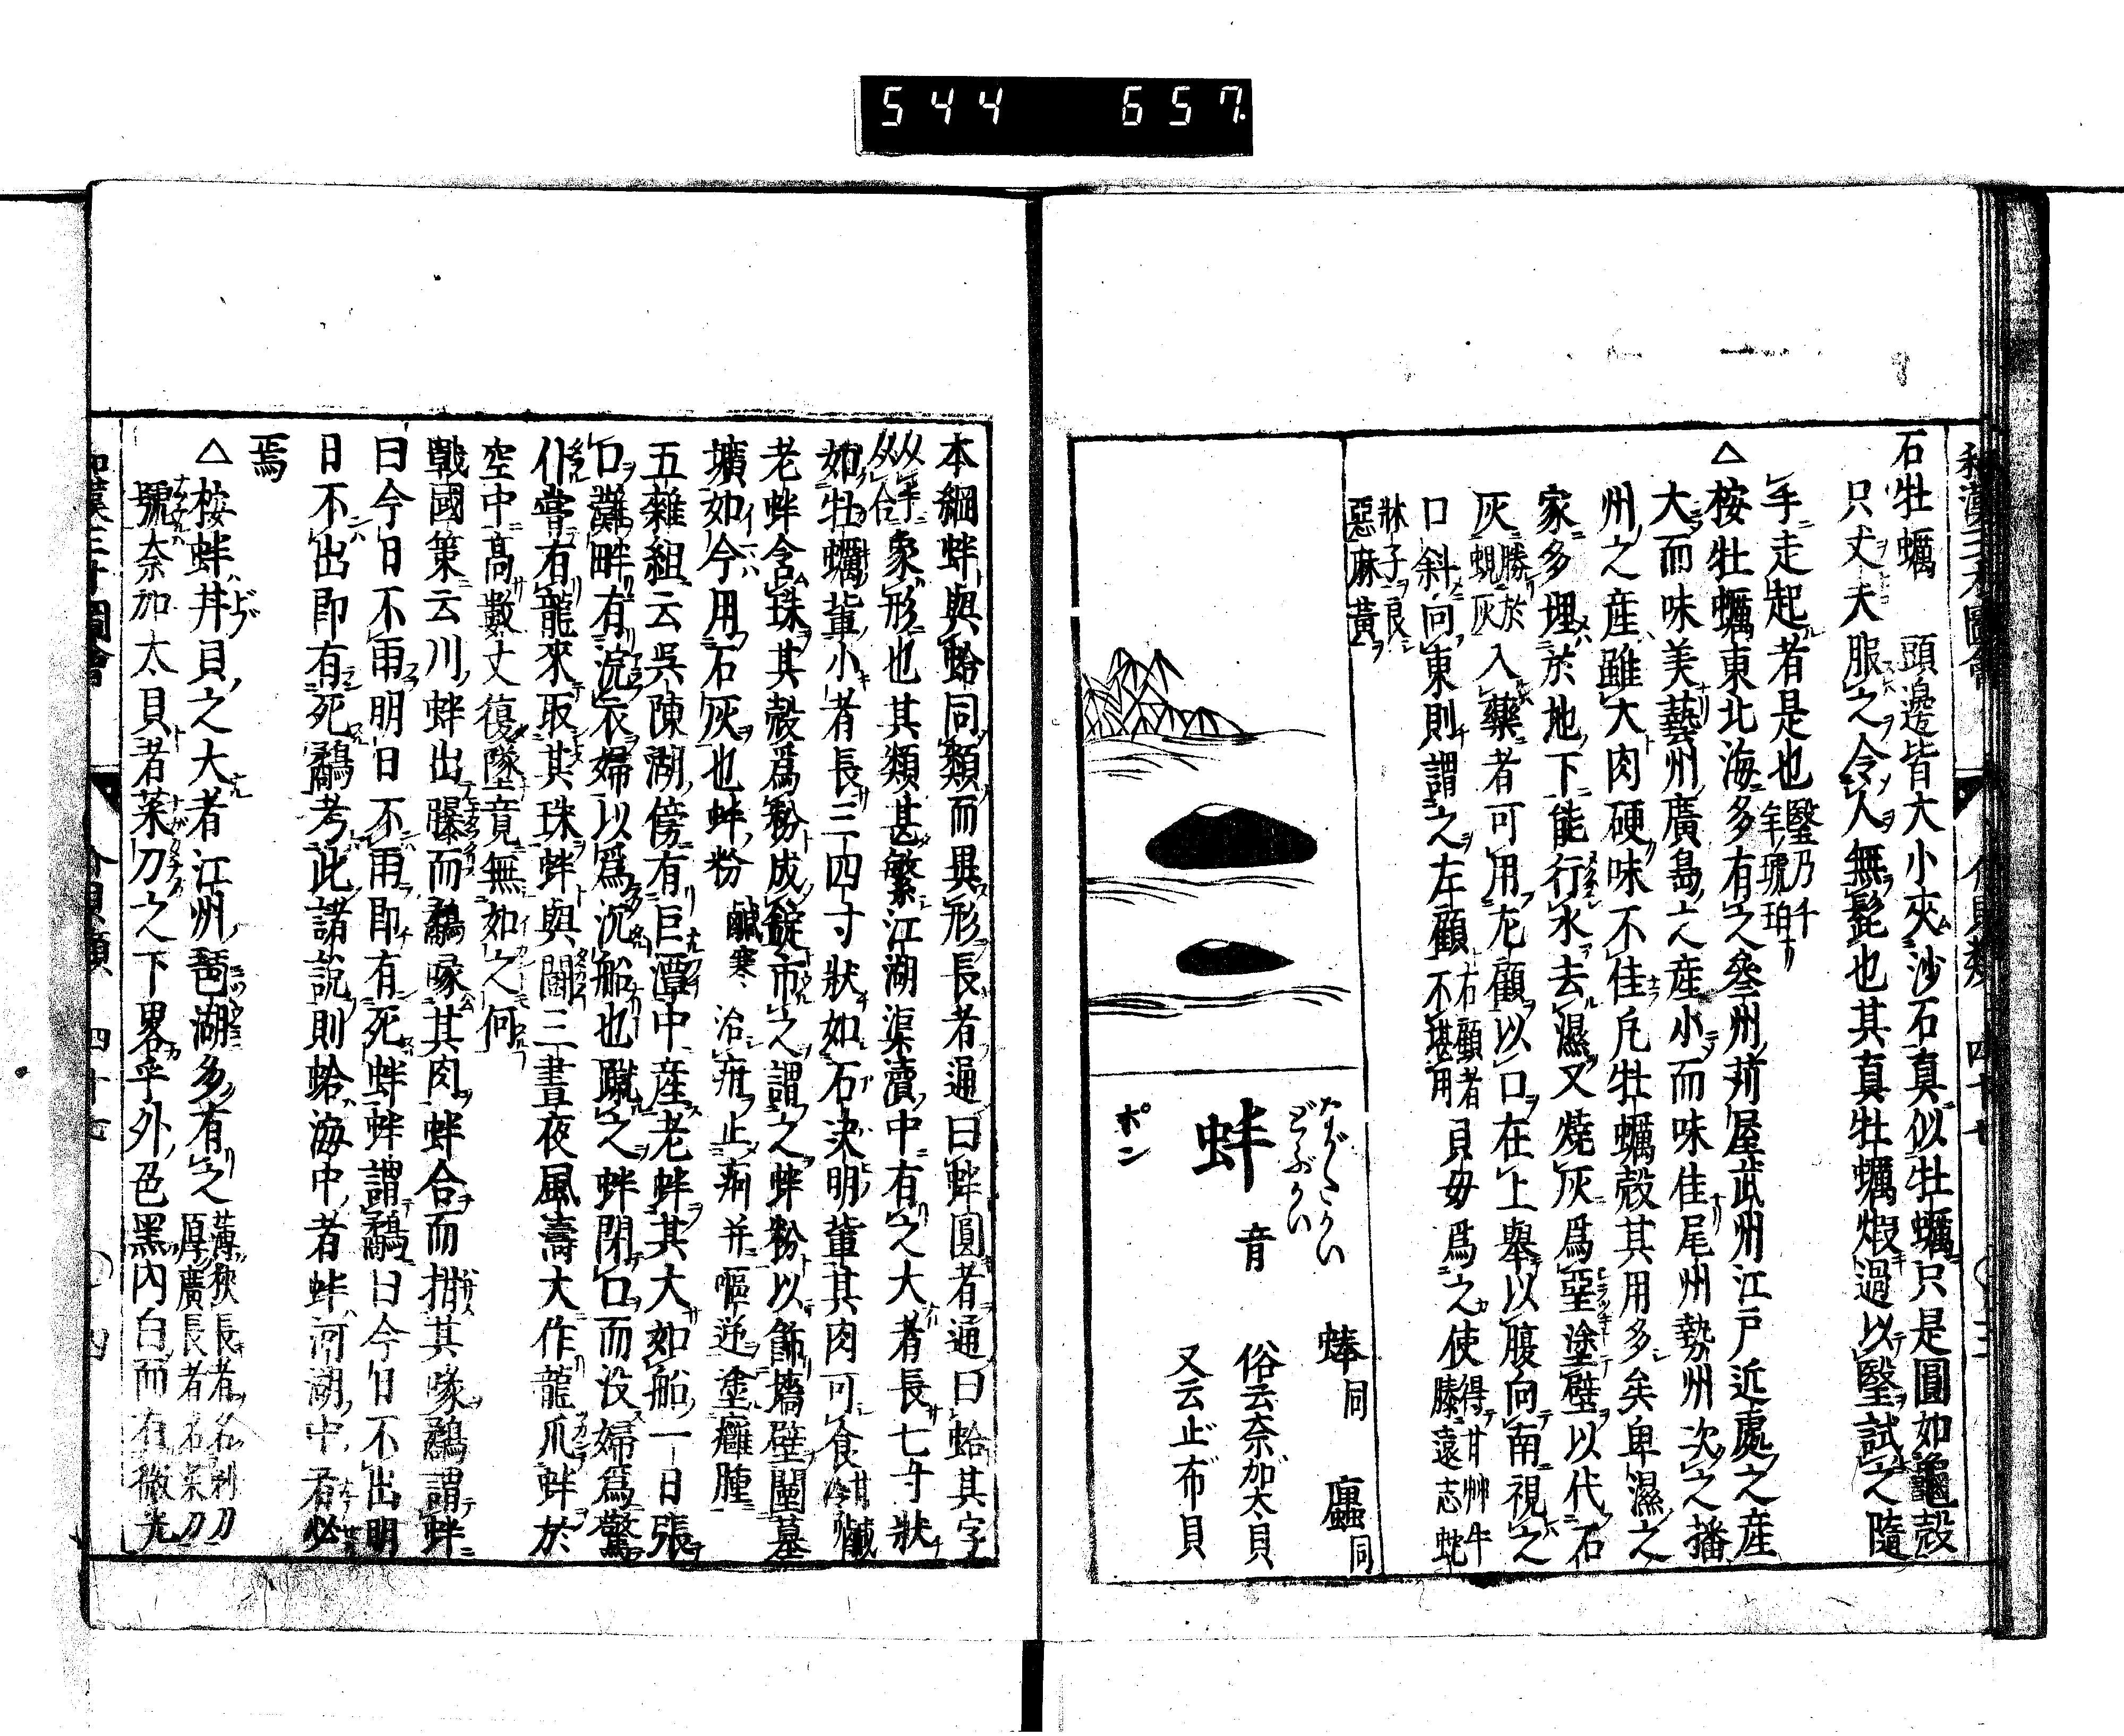 544 657
和漢三才圖會 介貝類 四十七 〇 三
石牡蠣 頭邊皆大小夾沙石真似牡蠣只是圓如龜殼
只丈夫服之令人無髭也其真牡蠣煆過以鑿試之隨
手走起者是也 鑿乃千年琥珀
△按牡蠣東北海多有之參州苅屋武州江戸近處之産
大而味美藝州廣島之産小而味佳尾州勢州次之播
州之産雖大肉硬味不佳凡牡蠣殼其用多矣卑濕之
家多埋於地下能行水去濕又燒灰爲堊塗壁以代石
灰 勝於蜆灰 入藥者可用左顧以口在上舉以腹向南視之
口斜向東則謂之左顧 右顧者不堪用 貝毋爲之使 得甘艸牛膝遠志蛇
牀子良惡麻黃
蚌 音
ながたかい
どぶかい
ポン
蜯同 蠯同
俗云奈加太貝
又云止布貝
本綱蚌與蛤同類而異形長者通曰蚌圓者通曰蛤其字
从丰从合象形也其類甚繁江湖渠瀆中有之大者長七寸狀
如牡蠣輩小者長三四寸狀如石決明輩其肉可食 甘鹹冷
老蚌含珠其殼爲粉成錠市之謂之蚌粉以飾墻壁闉墓
壙如今用石灰也蚌粉 鹹寒 治疳止痢并嘔逆塗癰腫
五雜組云吳陳湖傍有巨潭中産老蚌其大如船一日張
口灘畔有浣衣婦以爲沉船也蹴之蚌閉口而没婦爲驚
仆嘗有龍來取其珠蚌與鬪三晝夜風濤大作龍爪蚌於
空中高數丈復墜竟無如之何
戰國策云川蚌出曝而鷸啄其肉蚌合而拑其喙鷸謂蚌
曰今日不雨明日不雨即有死蚌蚌謂鷸曰今日不出明
日不出即有死鷸考此諸説則蛤海中者蚌河湖中者必
焉
△按蚌丼貝之大者江州琶湖多有之 薄狹長者名剃刀 厚廣長者名菜刀
號奈加太貝者菜刀之下畧乎外色黑內白而有微光
和漢三才圖會 介貝類 四十七 〇 四